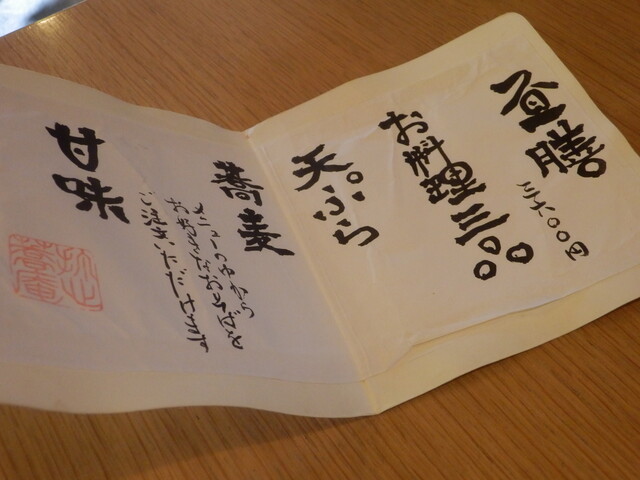 昼膳
三六〇〇円
お料理三品
天ぷら
蕎麦
メニューの中から
お好きなおそばを
ご注文いただけます
甘味